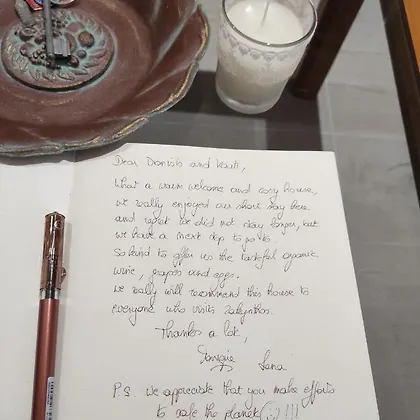 Dear Dionisis and
What a warm welcome and cosy house,
we really enjoyed our short stay here
and regret we did not stay longer, but
we have a next stop to go to.
So kind to offer us the tasteful organic
wine, grapes and eggs.
We really will recommend this house to
everyone who visits Zakynthos.
Thanks a lot,
Lana
P.S. we appreciate that you make efforts
to safe the planet (:)!!!